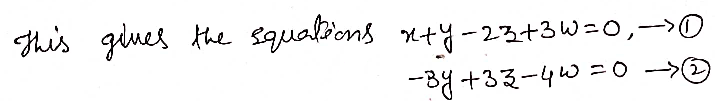 This gives the equations x+y-2z+3w=0, → ①
-3y+3z-4w=0 → ②